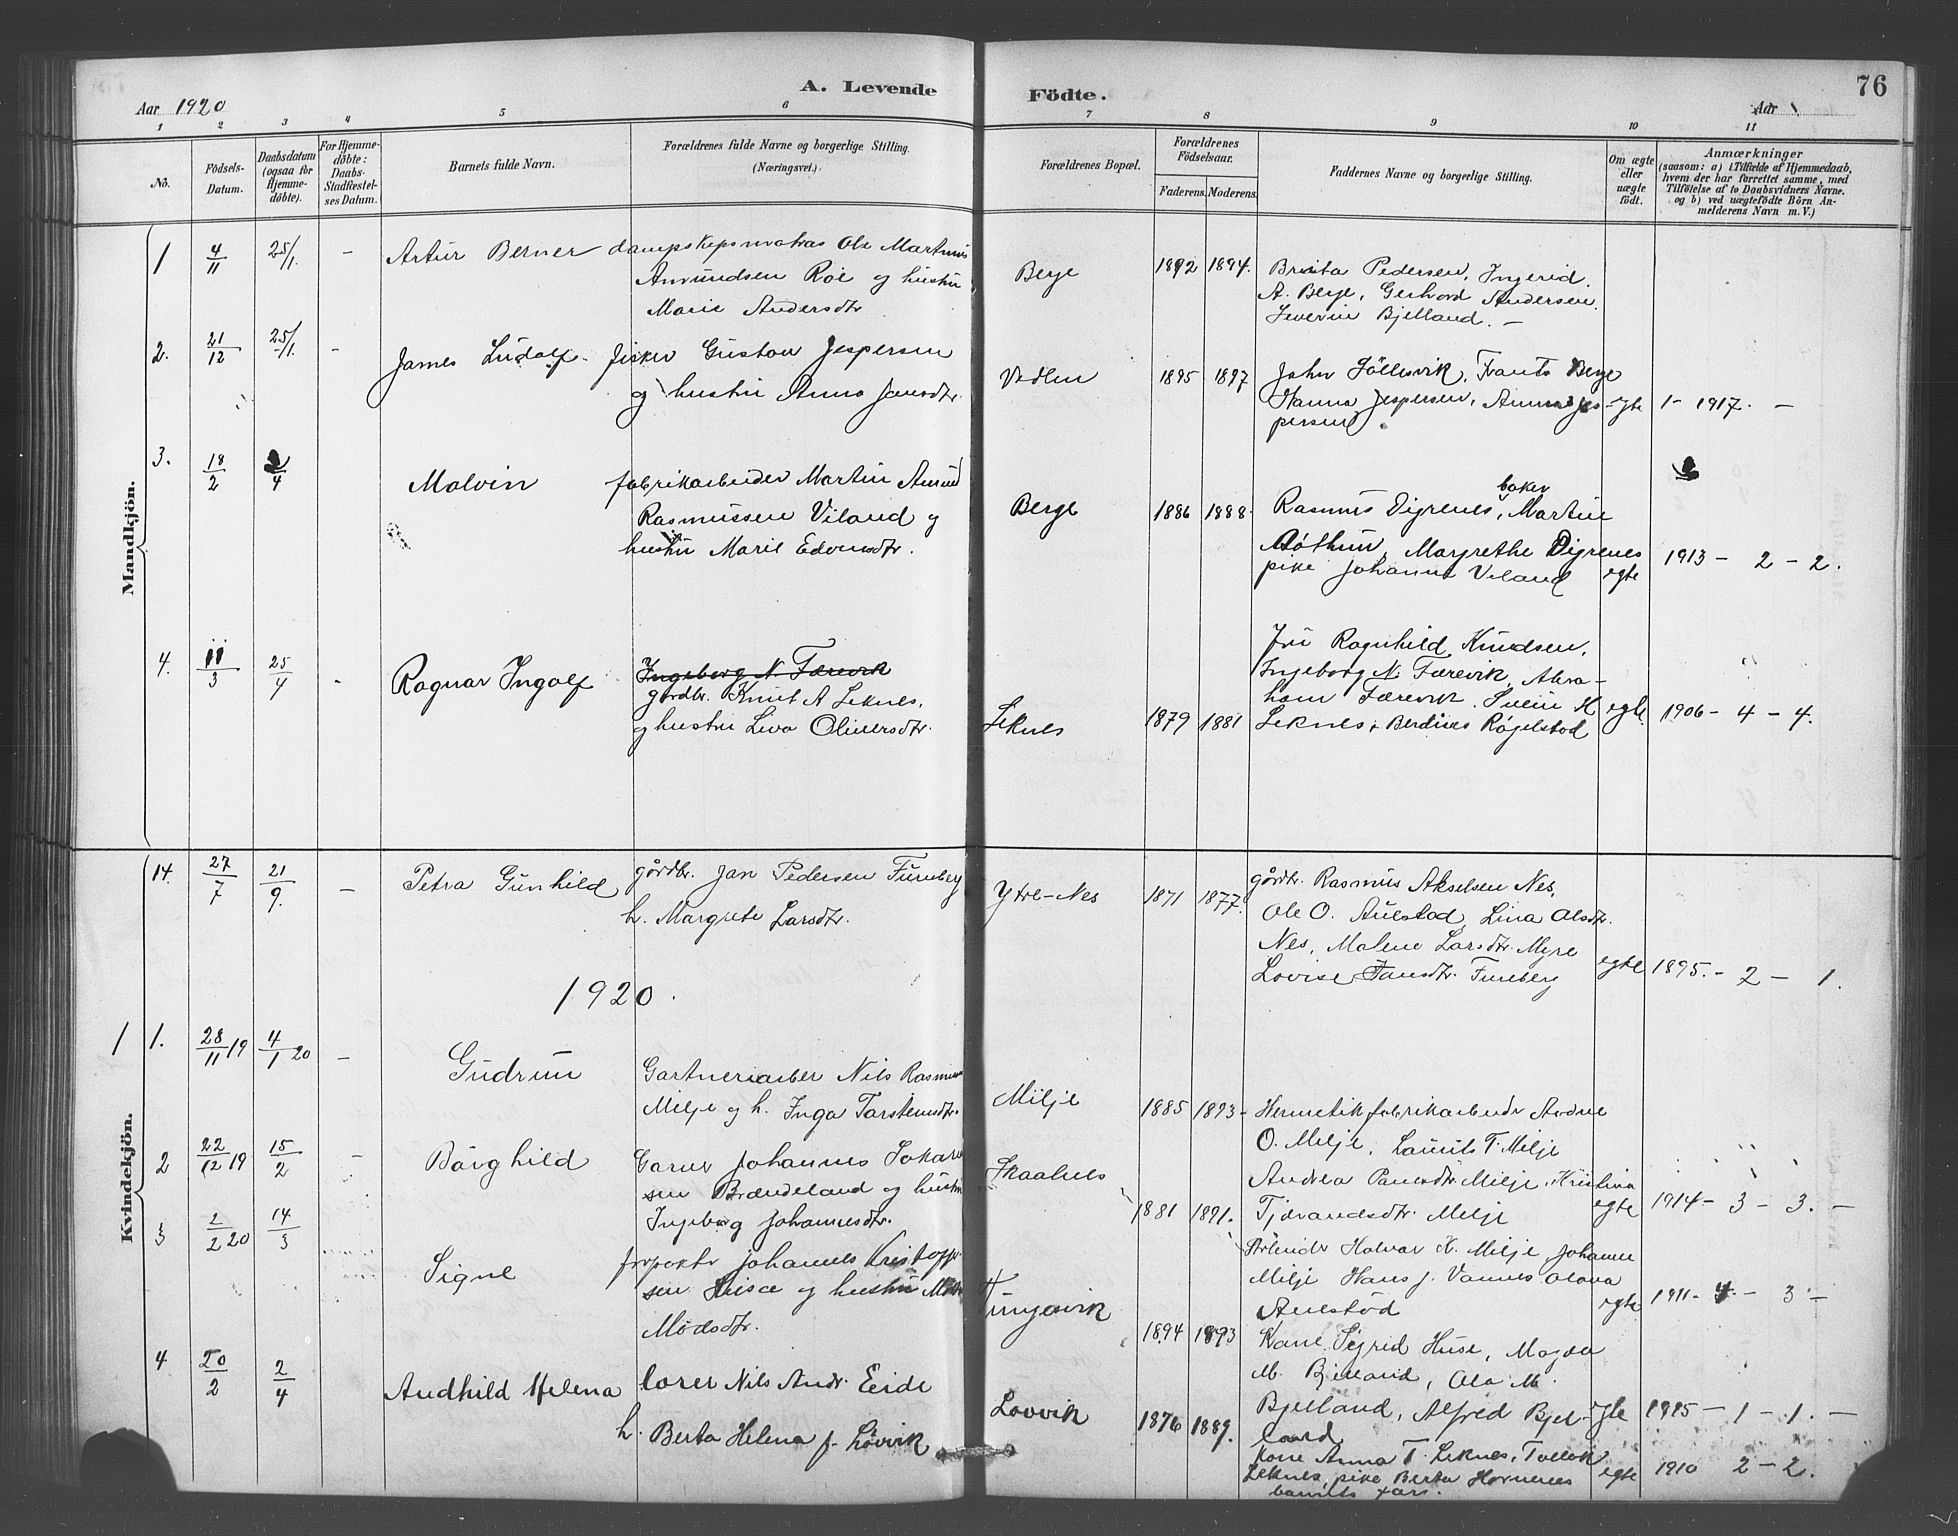 76
Aar 1920
A. Levende
Födte.
Aar
1 2 3 4 5 6 7 8 9 10 11
No.
Födsels-Datum.
Daabsdatum (ogsaa for Hjemme-døbte).
For Hjemme-døbte: Daabs-Stadfæstel-ses Datum.
Barnets fulde Navn.
Forældrenes fulde Navne og borgerlige Stilling. (Næringsvei.)
Forældrenes Bopæl.
Forældrenes Födselsaar.
Faderens. Moderens.
Faddernes Navne og borgerlige Stilling.
Om ægte eller uægte födt.
Anmærkninger
(saasom: a) i Tilfælde af Hjemmedaab,
hvem der har forrettet samme, med
Tilföielse af to Daabsvidners Navne,
og b) ved uægtefödte Börn An-
melderens Navn m. V.)
Mandkjön.
1 4/11 25/1. – Artur Berner dampskipsmatros Ole Martinus
Amundsen Roe og hustru
Marie Andersdtr
Berge 1892 1894. Brita Pedersen, Ingerid
A. Berge, Gerhard Andersen
Severin Bjelland. –
2. 21/12 25/1. – James Ludolf. fisker Gustav Jespersen
og hustru Anna Jansdtr.
Vedlen 1895 1897 John Föllesvik, Frants Berge
Hanna Jespersen, Anna Jes-
persen. egte 1 – 1917. –
3. 18/2 /4 Malvin fabrikarbeider Martin Amund
Rasmussen Viland og
hustru Marie Edvinsdtr.
Berge 1886 1888. Rasmus Digrenes, baker Martin
Margrethe Digrenes
pike Johanne Viland egte 1913 – 2 – 2.
4. 11/3 25/4 – Ragnar Ingolf Ingeborg N. Færevik
gårdbr. Knut A Leknes,
og hustru Liva Oliversdtr.
Leknes 1879 1881 Fru Ragnhild Knudsen,
Ingeborg N. Færevik, Abra-
ham Færevik. Svein K
Leknes, Berdines Røgelstad egte 1906 – 4 – 4.
Kvindekjön.
14. 27/7 21/9. – Petra Gunhild gårdbr. Jan Pedersen Fureberg
h. Margrete Larsdtr.
Ytre-Nes 1871 1877. gårdbr. Rasmus Akselsen Nes,
Ole O. Aulestad, Lina Olsdtr.
Nes, Malene Larsdtr. Myre
Lovise Jansdtr. Fureberg egte 1895. – 2 – 1.
1920.
1 1. 28/11 19 4/1 20 – Gudrun Gartneriarber Nils Rasmus
Milje og h. Inga Tarsteinsdtr.
Milje 1885 1893 – Hermetikfabrikarbeidr
O. Milje, Laurits T. Milje
Andrea Milje, Kristina
Tjerandsdtr. Milje egte 1914 – 3 – 3. –
2 22/12 19 15/2 – Borghild Johannes
sen Brændeland og hustru
Ingeborg Johannesdtr.
Skaalnes 1881 1891. Arbeidr Halvar K. Milje, Johanne
Milje Hans J. Olava
Aulestad egte 1911 – 4 – 3 –
3 2/2 20 14/3 Signe forpakter Johannes Kristoffer
sen Huse og hustru
Madsdtr.
Tungesvik 1894 1893 Kone Sigrid Huse, Magda
M. Bjelland, Ola M.
Bjelland, Alfred Bjel-
land egte 1915 – 1 – 1. –
4 20/2 2/4 Audhild Helena lærer Nils Andr. Eide
h. Berta Helena f. Løvvik
Lovvik 1876 1889. Kone Anna T. Leknes, Tollek
Leknes, pike Berta Hornenes
barnets fars. egte 1910 2 – 2.